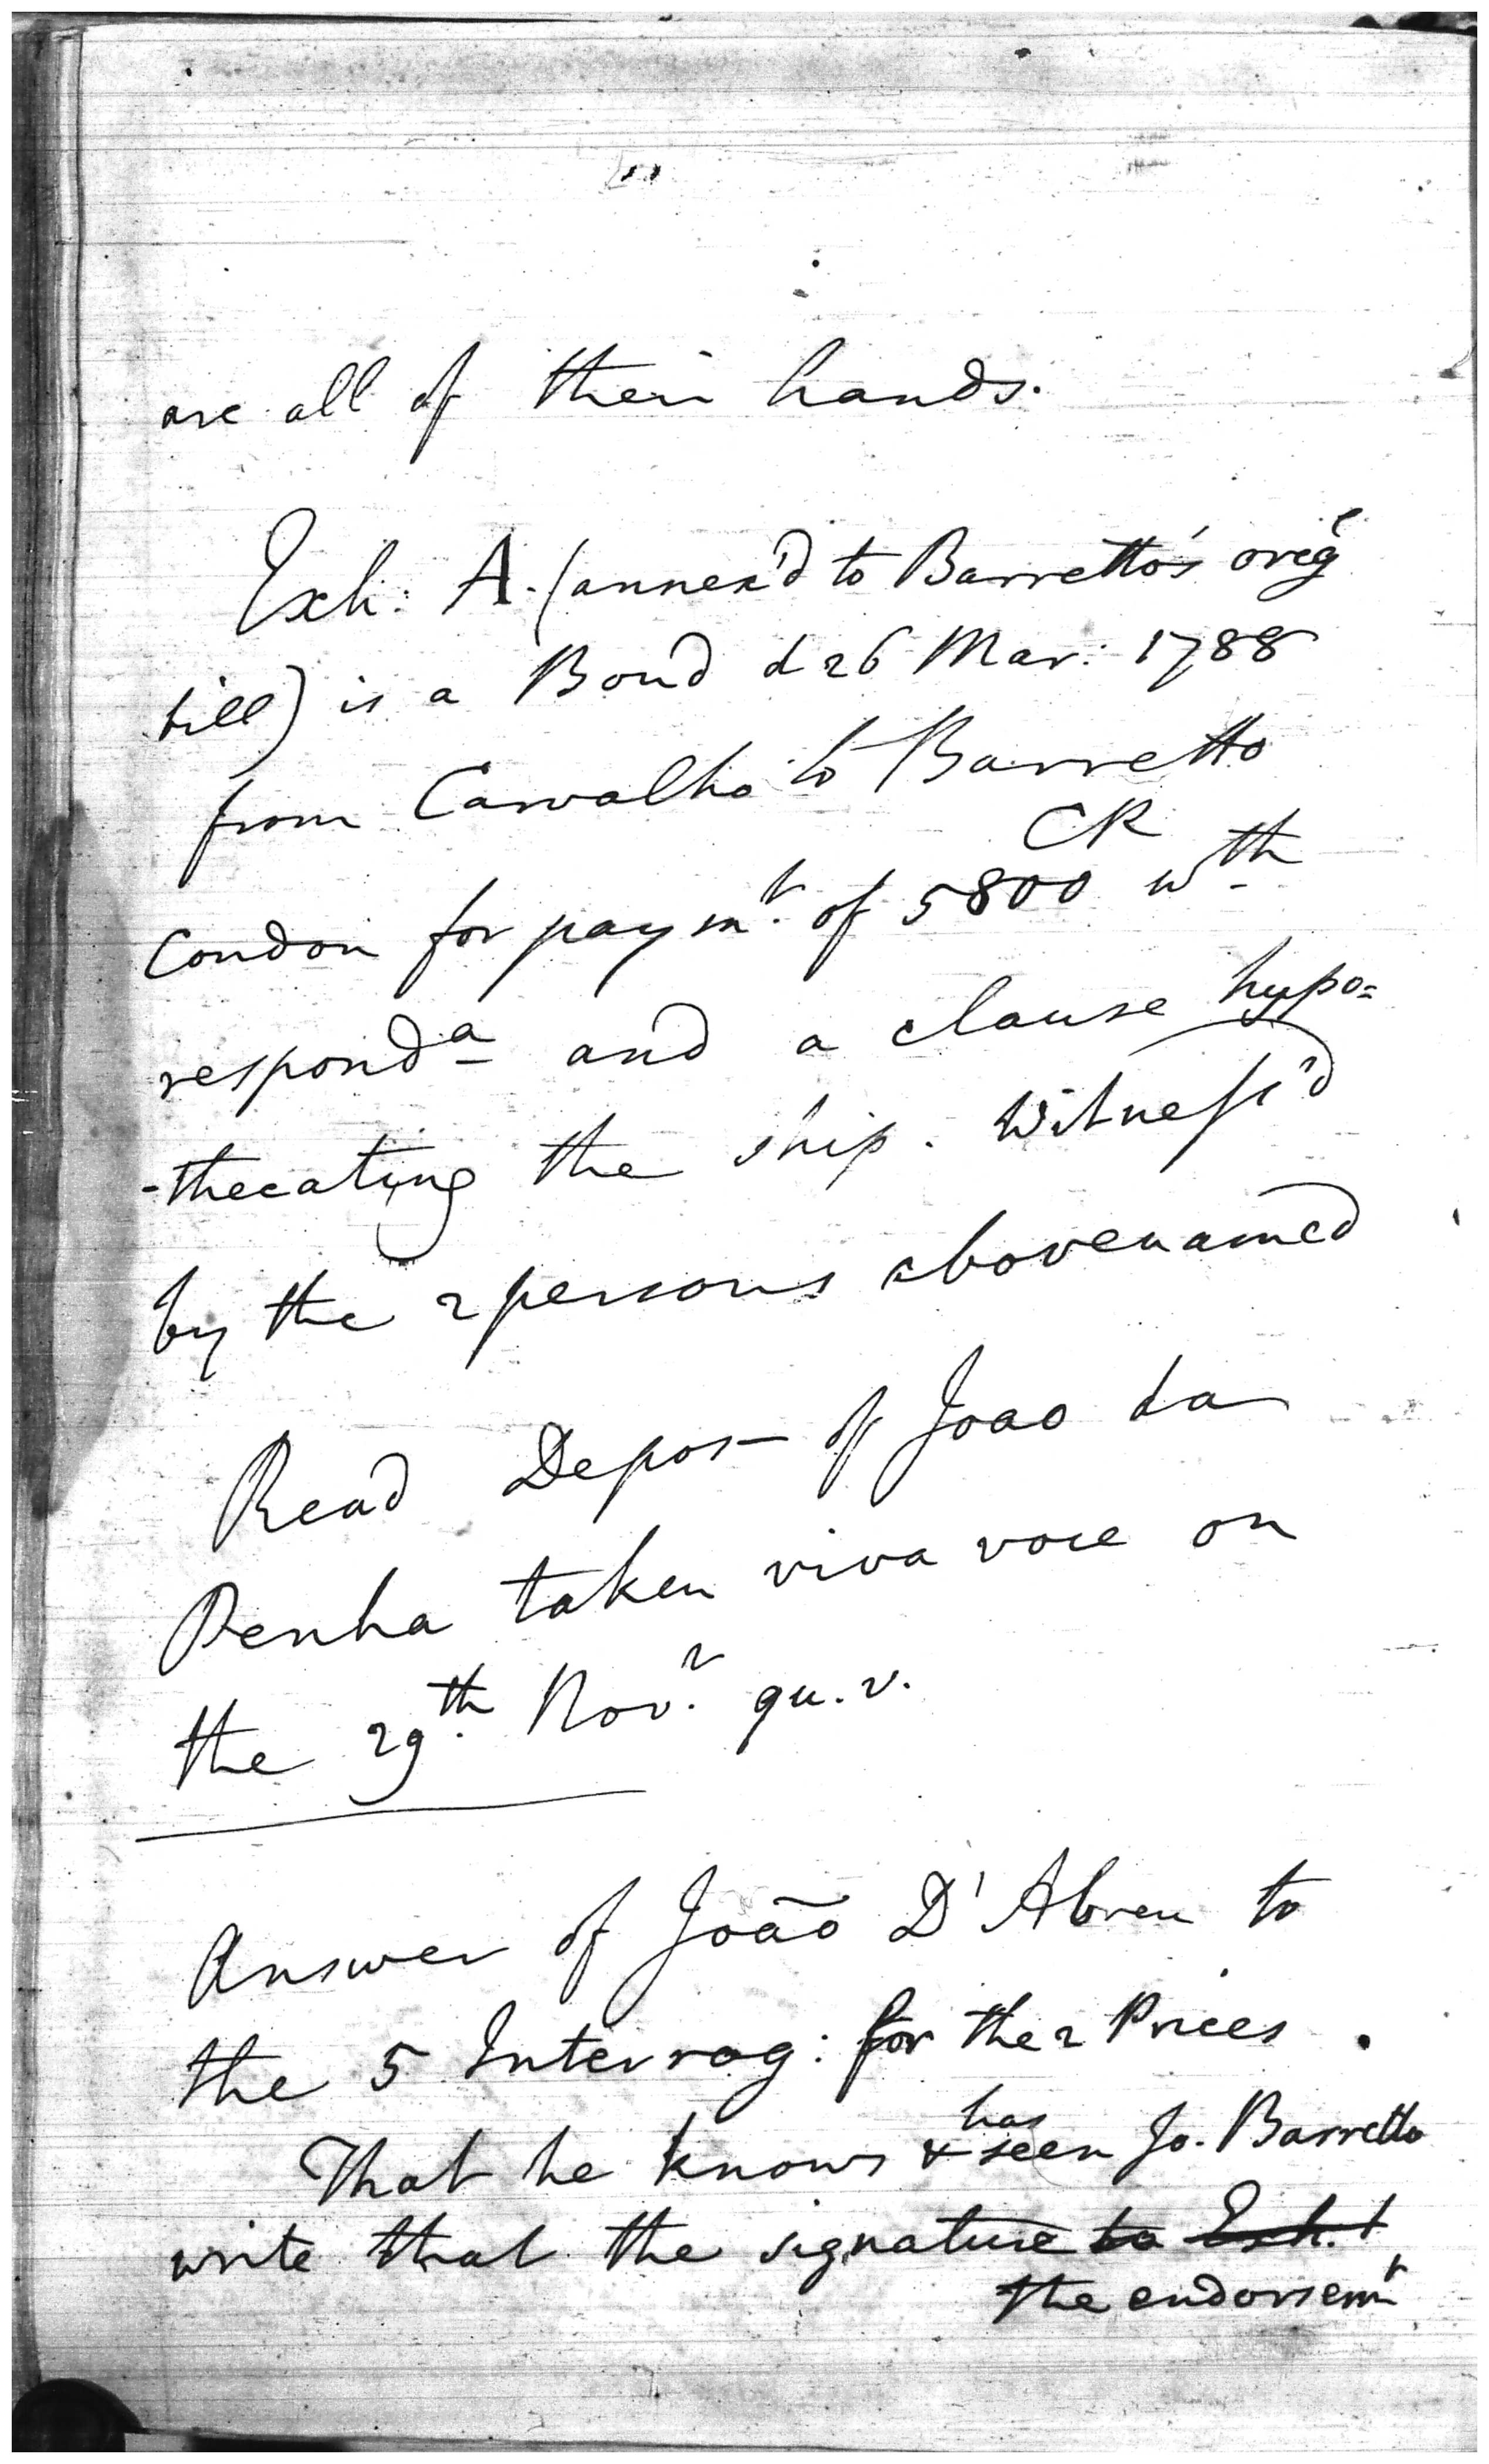 are all of their hands.
Exh: A. (annex'd to Barretto's orig<sup>l</sup>
bill) is a Bond d 26 Mar: 1788
from Carvalho to Barretto
CR
condon for paym<sup>t</sup>. of 5800 w<sup>th</sup>
respond<sup>a</sup> and a clause hypo=
-thecating the ship. Witness'd
by the 2 persons abovenamed
Read Depos- of Joao da
Penha taken viva voce on
the 29<sup>th</sup>. Nov<sup>r</sup>. qu. v.
Answer of João D'Abreu to
the 5 Interrog: for the 2 Prices.
has
That he knows & seen Jo. Barretto
write that the signature to Exh. 1
the endorsem<sup>t</sup>